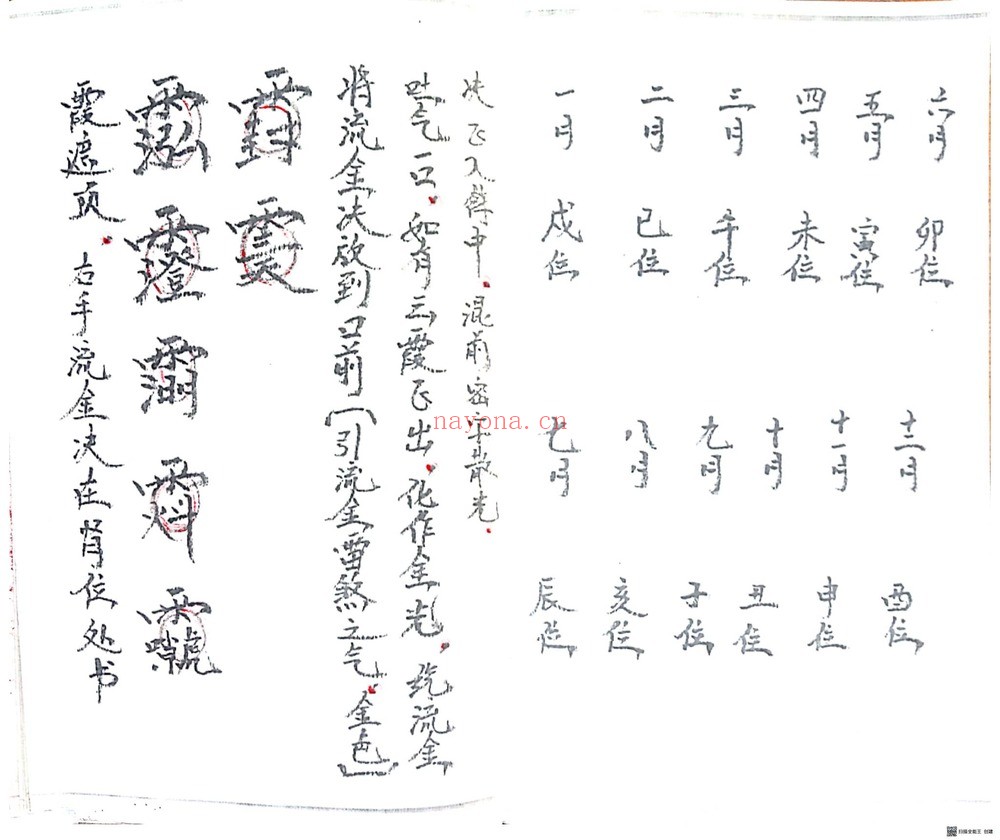 霞遮顶。右手流金决在肾位处书
霐
将流金决放到口前[引流金雷煞之气。金色]
吐气一口。如有云霞飞出。化作金光。流金
决飞入体中。混前密字散光。
一月 二月 三月 四月 五月 六月
戌位 巳位 午位 未位 寅位 卯位
七月 八月 九月 十月 十一月 十二月
辰位 亥位 子位 丑位 申位 酉位
nayona.cn
扫描全能王 创建